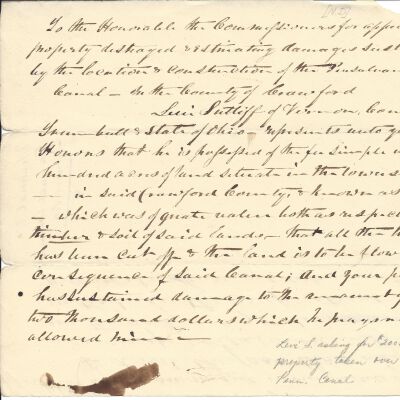 [N.D.]
To the Honorable the Commissioners for appra
property destroyed & estimating damages sust
by the location & construction of the Pensulvan
Canal — In the County of Crawford
Levi Sutliff of Vernon, Coun
Trumbull & State of Ohio represents unto y
Honors that he is possessed of the fee simple
hundred acres of land situate in the towns
— in said Crawford County, & known as
— which was of great value both as respec
timber & soil of said lands — that all the t
has been cut off & the land is to be flow
consequence of said Canal; And your p
has sustained damage to the amount
two thousand dollars which he prays m
allowed him —
Levi S. asking for $200
property taken over
Penn. Canal